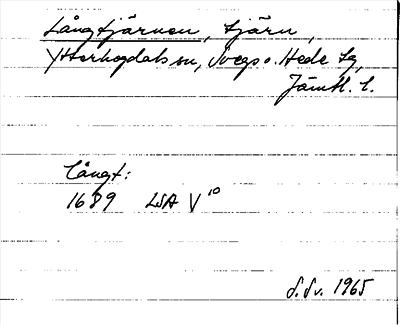 Långtjärnen, tjärn,
Ytterhogdals sn, Svegs o. Hede tg,
Jämtl. l.
Långt:
1689 LSA V 10
S.Sv. 1965